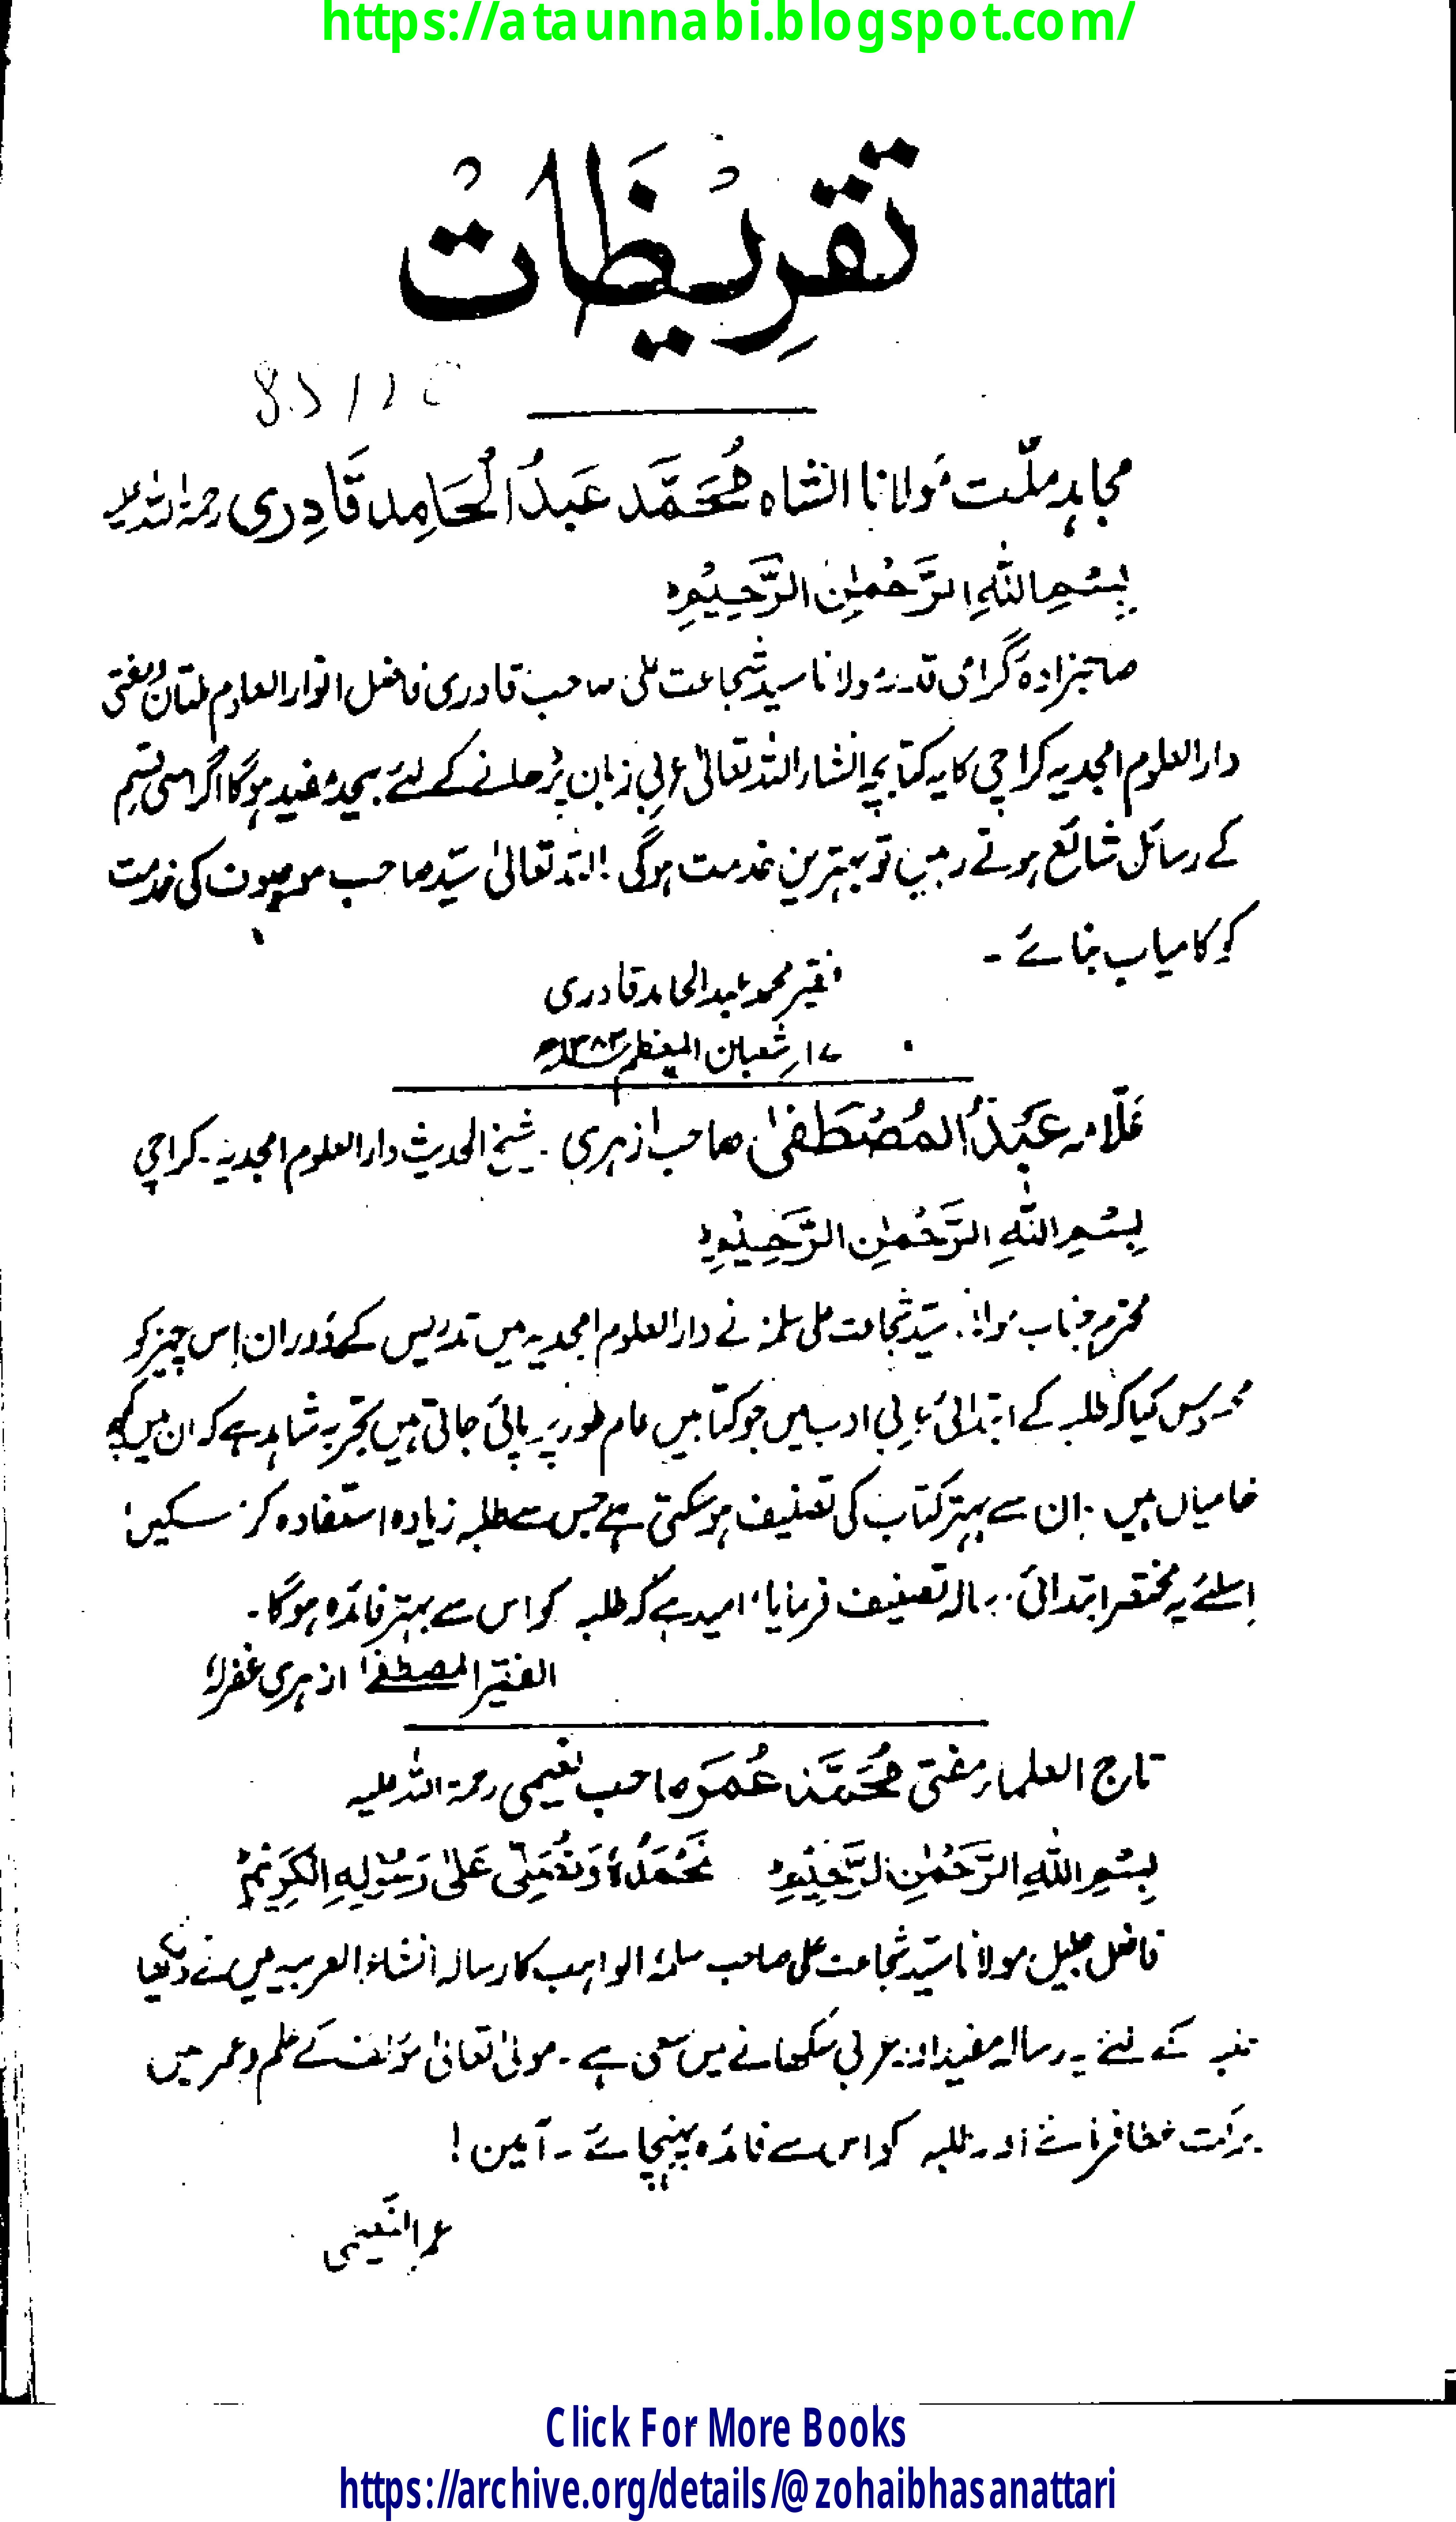 https://ataunnabi.blogspot.com/
تقریظات
مجاہد ملّت مولانا الشاہ مُحَمَّد عَبدُ الْحَامِد قَادِری رحمۃ اللہ علیہ
بِسْمِ اللّٰہِ الرَّحْمٰنِ الرَّحِیْمِ
صاحبزادہ گرامی قدر مولانا سید شجاعت علی صاحب قادری فاضل انوار العلوم ملتان و مفتی
دارالعلوم امجدیہ کراچی کا یہ کتابچہ انشاء اللہ تعالیٰ عربی زبان پڑھانے کے لئے بیحد مفید ہوگا اگر اسی قسم
کے رسائل شائع ہوتے رہیں تو بہترین خدمت ہوگی! اللہ تعالیٰ سیّد صاحب موصوف کی خدمت
کو کامیاب بنائے ۔
فقیر محمد عبدالحامد قادری
۱۷ شعبان المعظم ۱۳۸۳ھ
علّامہ عَبْدُ الْمُصْطَفٰی صاحب ازہری ۔ شیخ الحدیث دارالعلوم امجدیہ ۔ کراچی
بِسْمِ اللّٰہِ الرَّحْمٰنِ الرَّحِیْمِ
محترم جناب مولانا سیّد شجاعت علی سلمہ نے دارالعلوم امجدیہ میں تدریس کے دوران اِس چیز کو
محسوس کیا کہ طلبہ کے ابتدائی عربی ادب میں جو کتابیں عام طور پر پائی جاتی ہیں تجربہ شاہد ہے کہ ان میں کچھ
خامیاں ہیں ۔ ان سے بہتر کتاب کی تصنیف ہو سکتی ہے جس سے طلبہ زیادہ استفادہ کر سکیں
اِسلئے یہ مختصر ابتدائی رسالہ تصنیف فرمایا، امید ہے کہ طلبہ کو اس سے بہتر فائدہ ہوگا ۔
الفقیر المصطفےٰ ازہری غفرلہٗ
تاج العلماء مفتی مُحَمَّد عُمَر صاحب نعیمی رحمۃ اللہ علیہ
بِسْمِ اللّٰہِ الرَّحْمٰنِ الرَّحِیْمِ نَحْمَدُہٗ وَنُصَلِّی عَلٰی رَسُوْلِہِ الْکَرِیْمِ
فاضل جلیل مولانا سیّد شجاعت علی صاحب سلمہٗ الواہب کا رسالہ انشاء العربیہ میں نے دیکھا
طلبہ کے لئے یہ رسالہ مفید اور عربی سکھانے میں معین ہے ۔ مولیٰ تعالیٰ مؤلف کے علم و عمر میں
برکت عطا فرمائے اور طلبہ کو اس سے فائدہ پہنچائے ۔ آمین !
عمر النعیمی
Click For More Books
https://archive.org/details/@zohaibhasanattari